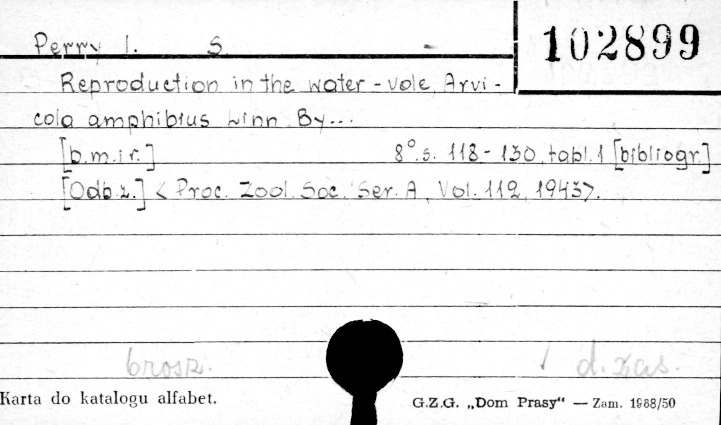 Perry I. S.
102899
Reproduction in the water-vole, Arvi-
cola amphibius Linn. By...
[b.m.i r.] 8°. s. 118-130, tabl. 1 [bibliogr.]
[Odb. z.] < Proc. Zool. Soc. Ser. A, Vol. 112, 1943>.
brosz. d. zas.
Karta do katalogu alfabet. G.Z.G. „Dom Prasy" — Zam. 1988/50